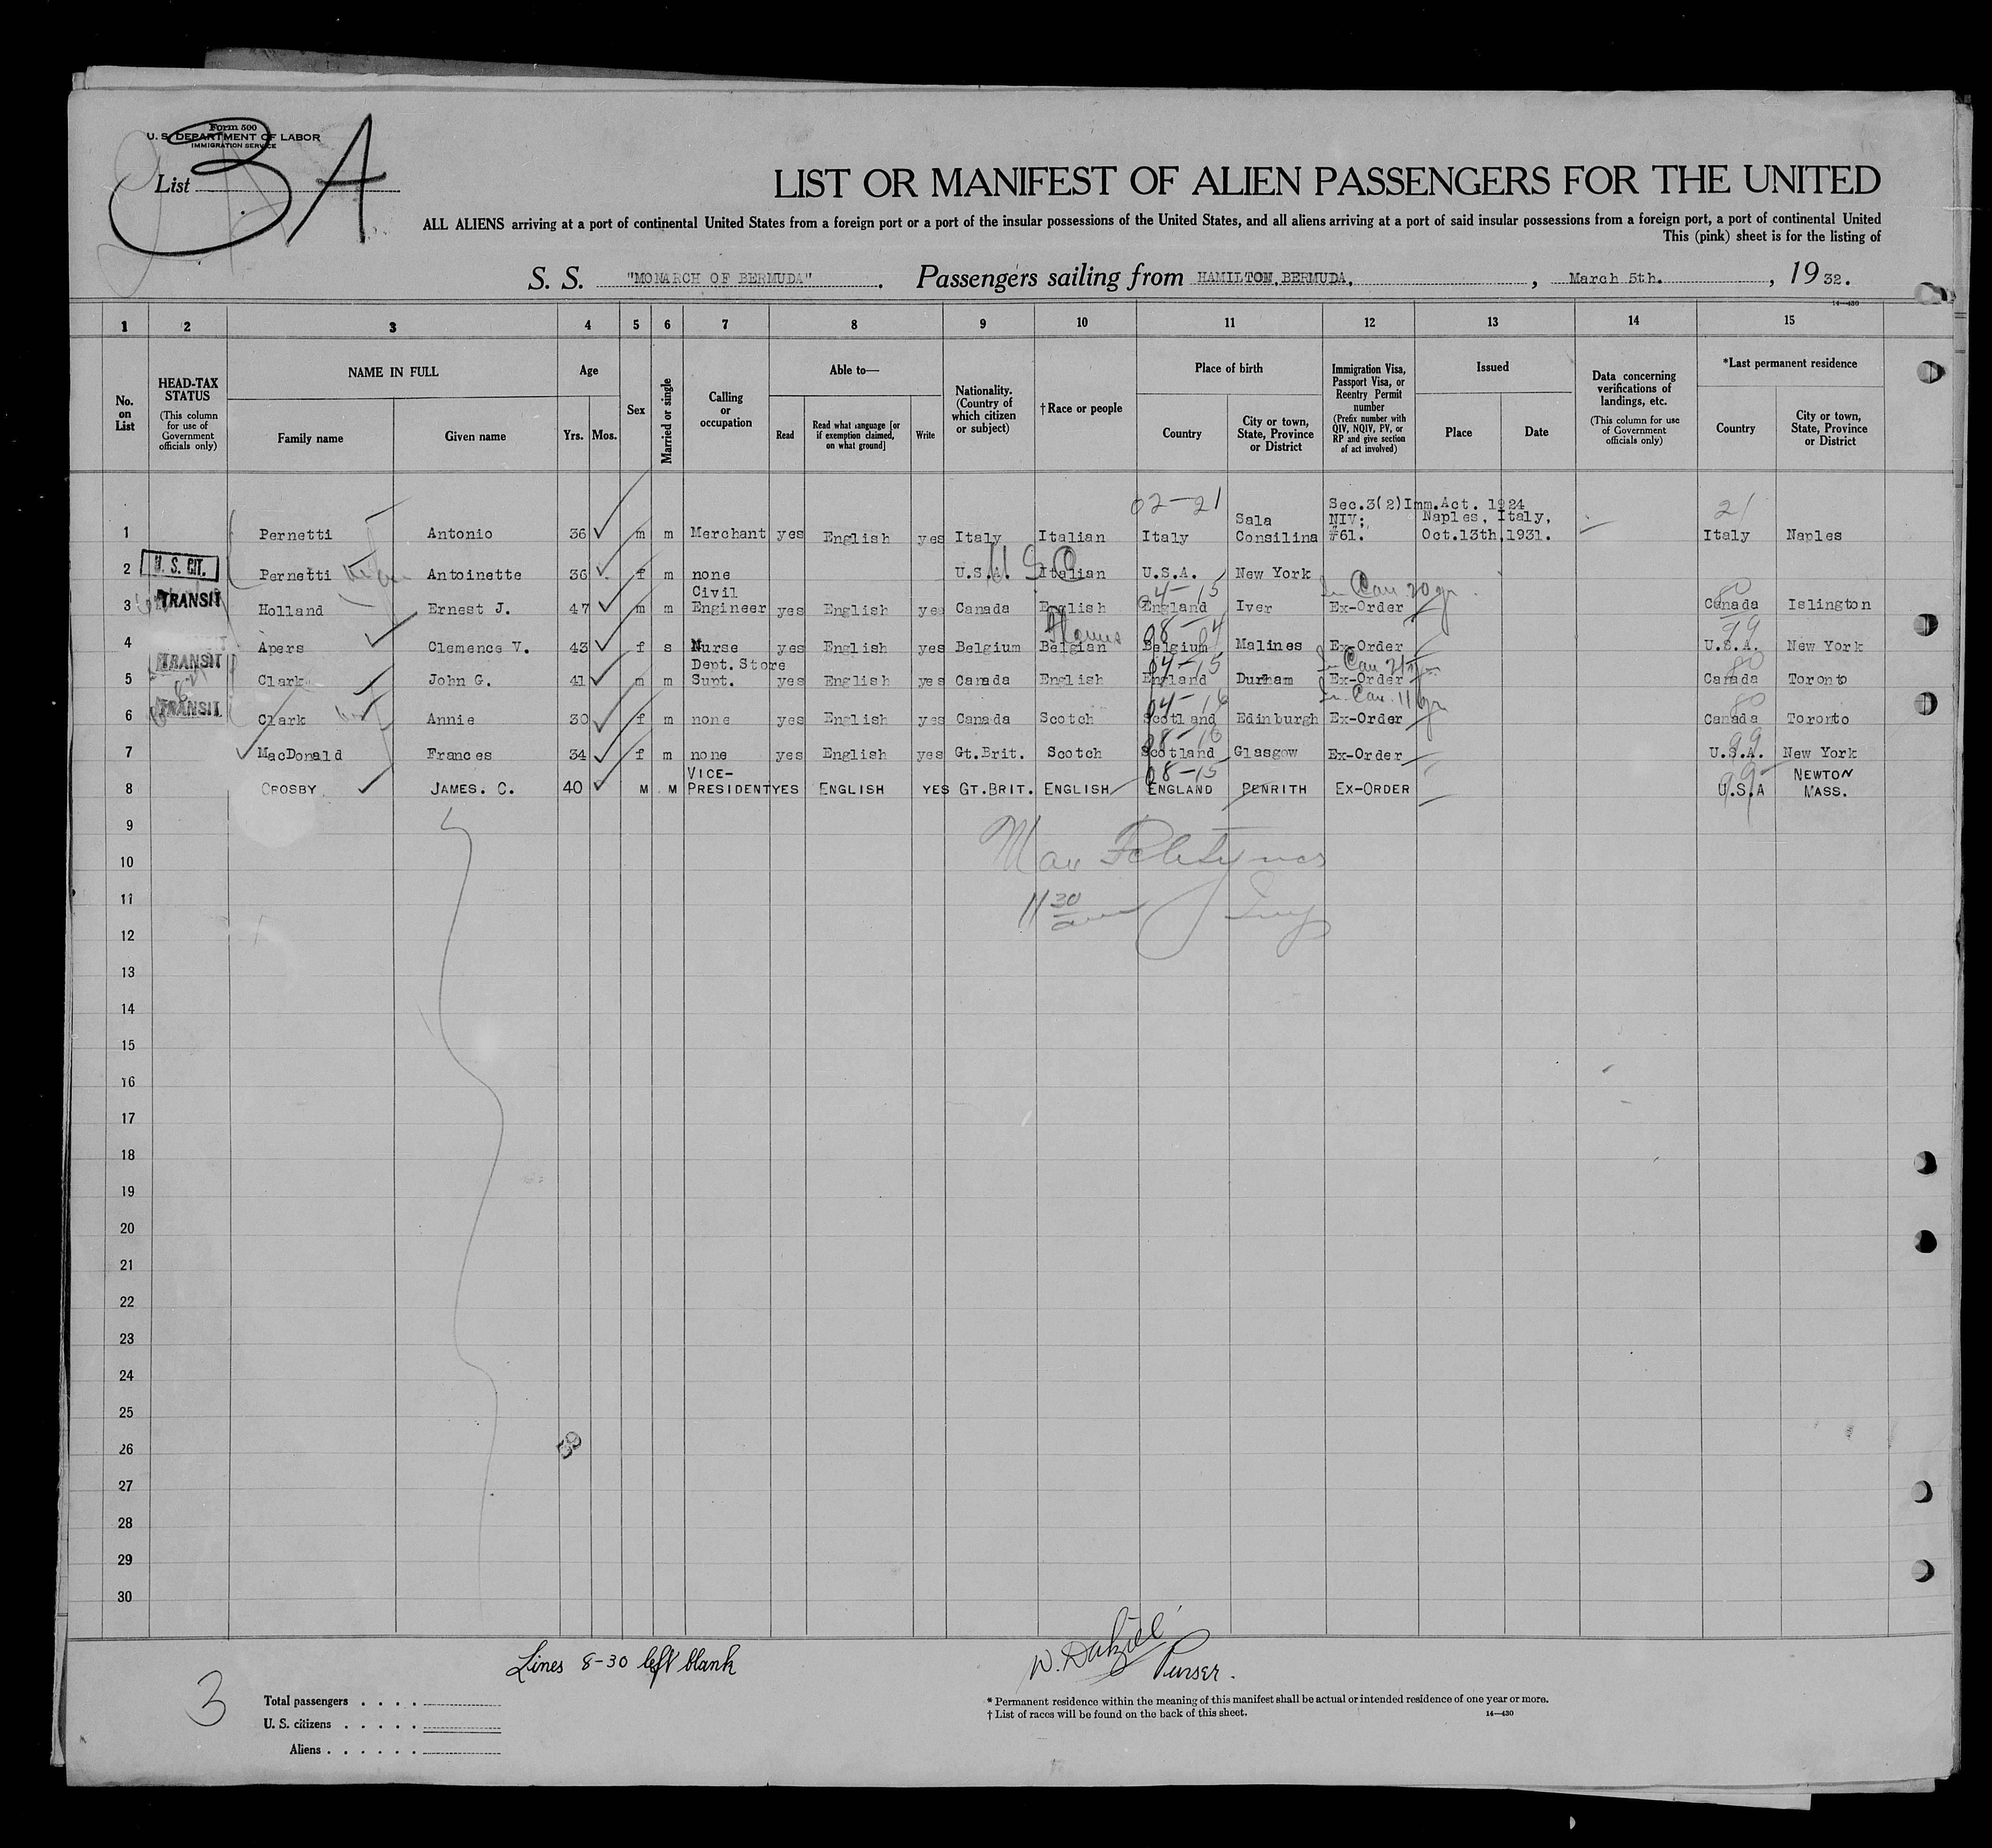 Form 500
U. S. DEPARTMENT OF LABOR
IMMIGRATION SERVICE
List 3 A
LIST OR MANIFEST OF ALIEN PASSENGERS FOR THE UNITED
ALL ALIENS arriving at a port of continental United States from a foreign port or a port of the insular possessions of the United States, and all aliens arriving at a port of said insular possessions from a foreign port, a port of continental United
This (pink) sheet is for the listing of
S. S. "MONARCH OF BERMUDA". Passengers sailing from HAMILTON, BERMUDA, , March 5th. , 19 32.
14—430
1 2 3 4 5 6 7 8 9 10 11 12 13 14 15
No. on List
HEAD-TAX STATUS (This column for use of Government officials only)
NAME IN FULL
Family name Given name
Age
Yrs. Mos.
Sex
Married or single
Calling or occupation
Able to—
Read
Read what language [or if exemption claimed, on what ground]
Write
Nationality. (Country of which citizen or subject)
†Race or people
Place of birth
Country
City or town, State, Province or District
Immigration Visa, Passport Visa, or Reentry Permit number (Prefix number with QIV, NQIV, PV, or RP and give section of act involved)
Issued
Place Date
Data concerning verifications of landings, etc. (This column for use of Government officials only)
*Last permanent residence
Country
City or town, State, Province or District
02-21 Sec.3(2)Imm.Act. 1924 21
Sala NIV; Naples, Italy,
1 Pernetti Antonio 36 m m Merchant yes English yes Italy Italian Italy Consilina #61. Oct.13th,1931. Italy Naples
2 U. S. CIT. Pernetti Antoinette 36 f m none U.S.A. U S C Italian U.S.A. New York
Civil 04-15 In Can 20 yr. 80
3 TRANSIT Holland Ernest J. 47 m m Engineer yes English yes Canada English England Iver Ex-Order Canada Islington
08-04 99
4 Apers Clemence V. 43 f s Nurse yes English yes Belgium Belgian Belgium Malines Ex-Order U.S.A. New York
TRANSIT Dept. Store 04-15 In Can 80
5 Clark John G. 41 m m Supt. yes English yes Canada English England Durham Ex-Order Canada Toronto
04-16 In Can. 11 yr 80
6 TRANSIT Clark Annie 30 f m none yes English yes Canada Scotch Scotland Edinburgh Ex-Order Canada Toronto
08-16 99
7 MacDonald Frances 34 f m none yes English yes Gt.Brit. Scotch Scotland Glasgow Ex-Order U.S.A. New York
VICE- 08-15 99 NEWTON
8 CROSBY JAMES. C. 40 M M PRESIDENT YES ENGLISH YES GT.BRIT. ENGLISH ENGLAND PENRITH EX-ORDER U.S.A MASS.
9
10 Max
11 11 30
12
13
14
15
16
17
18
19
20
21
22
23
24
25
26
27
28
29
30
Lines 8-30 left blank
Purser.
3
Total passengers . . . .
U. S. citizens . . . . .
Aliens . . . . . .
* Permanent residence within the meaning of this manifest shall be actual or intended residence of one year or more.
† List of races will be found on the back of this sheet.
14—430